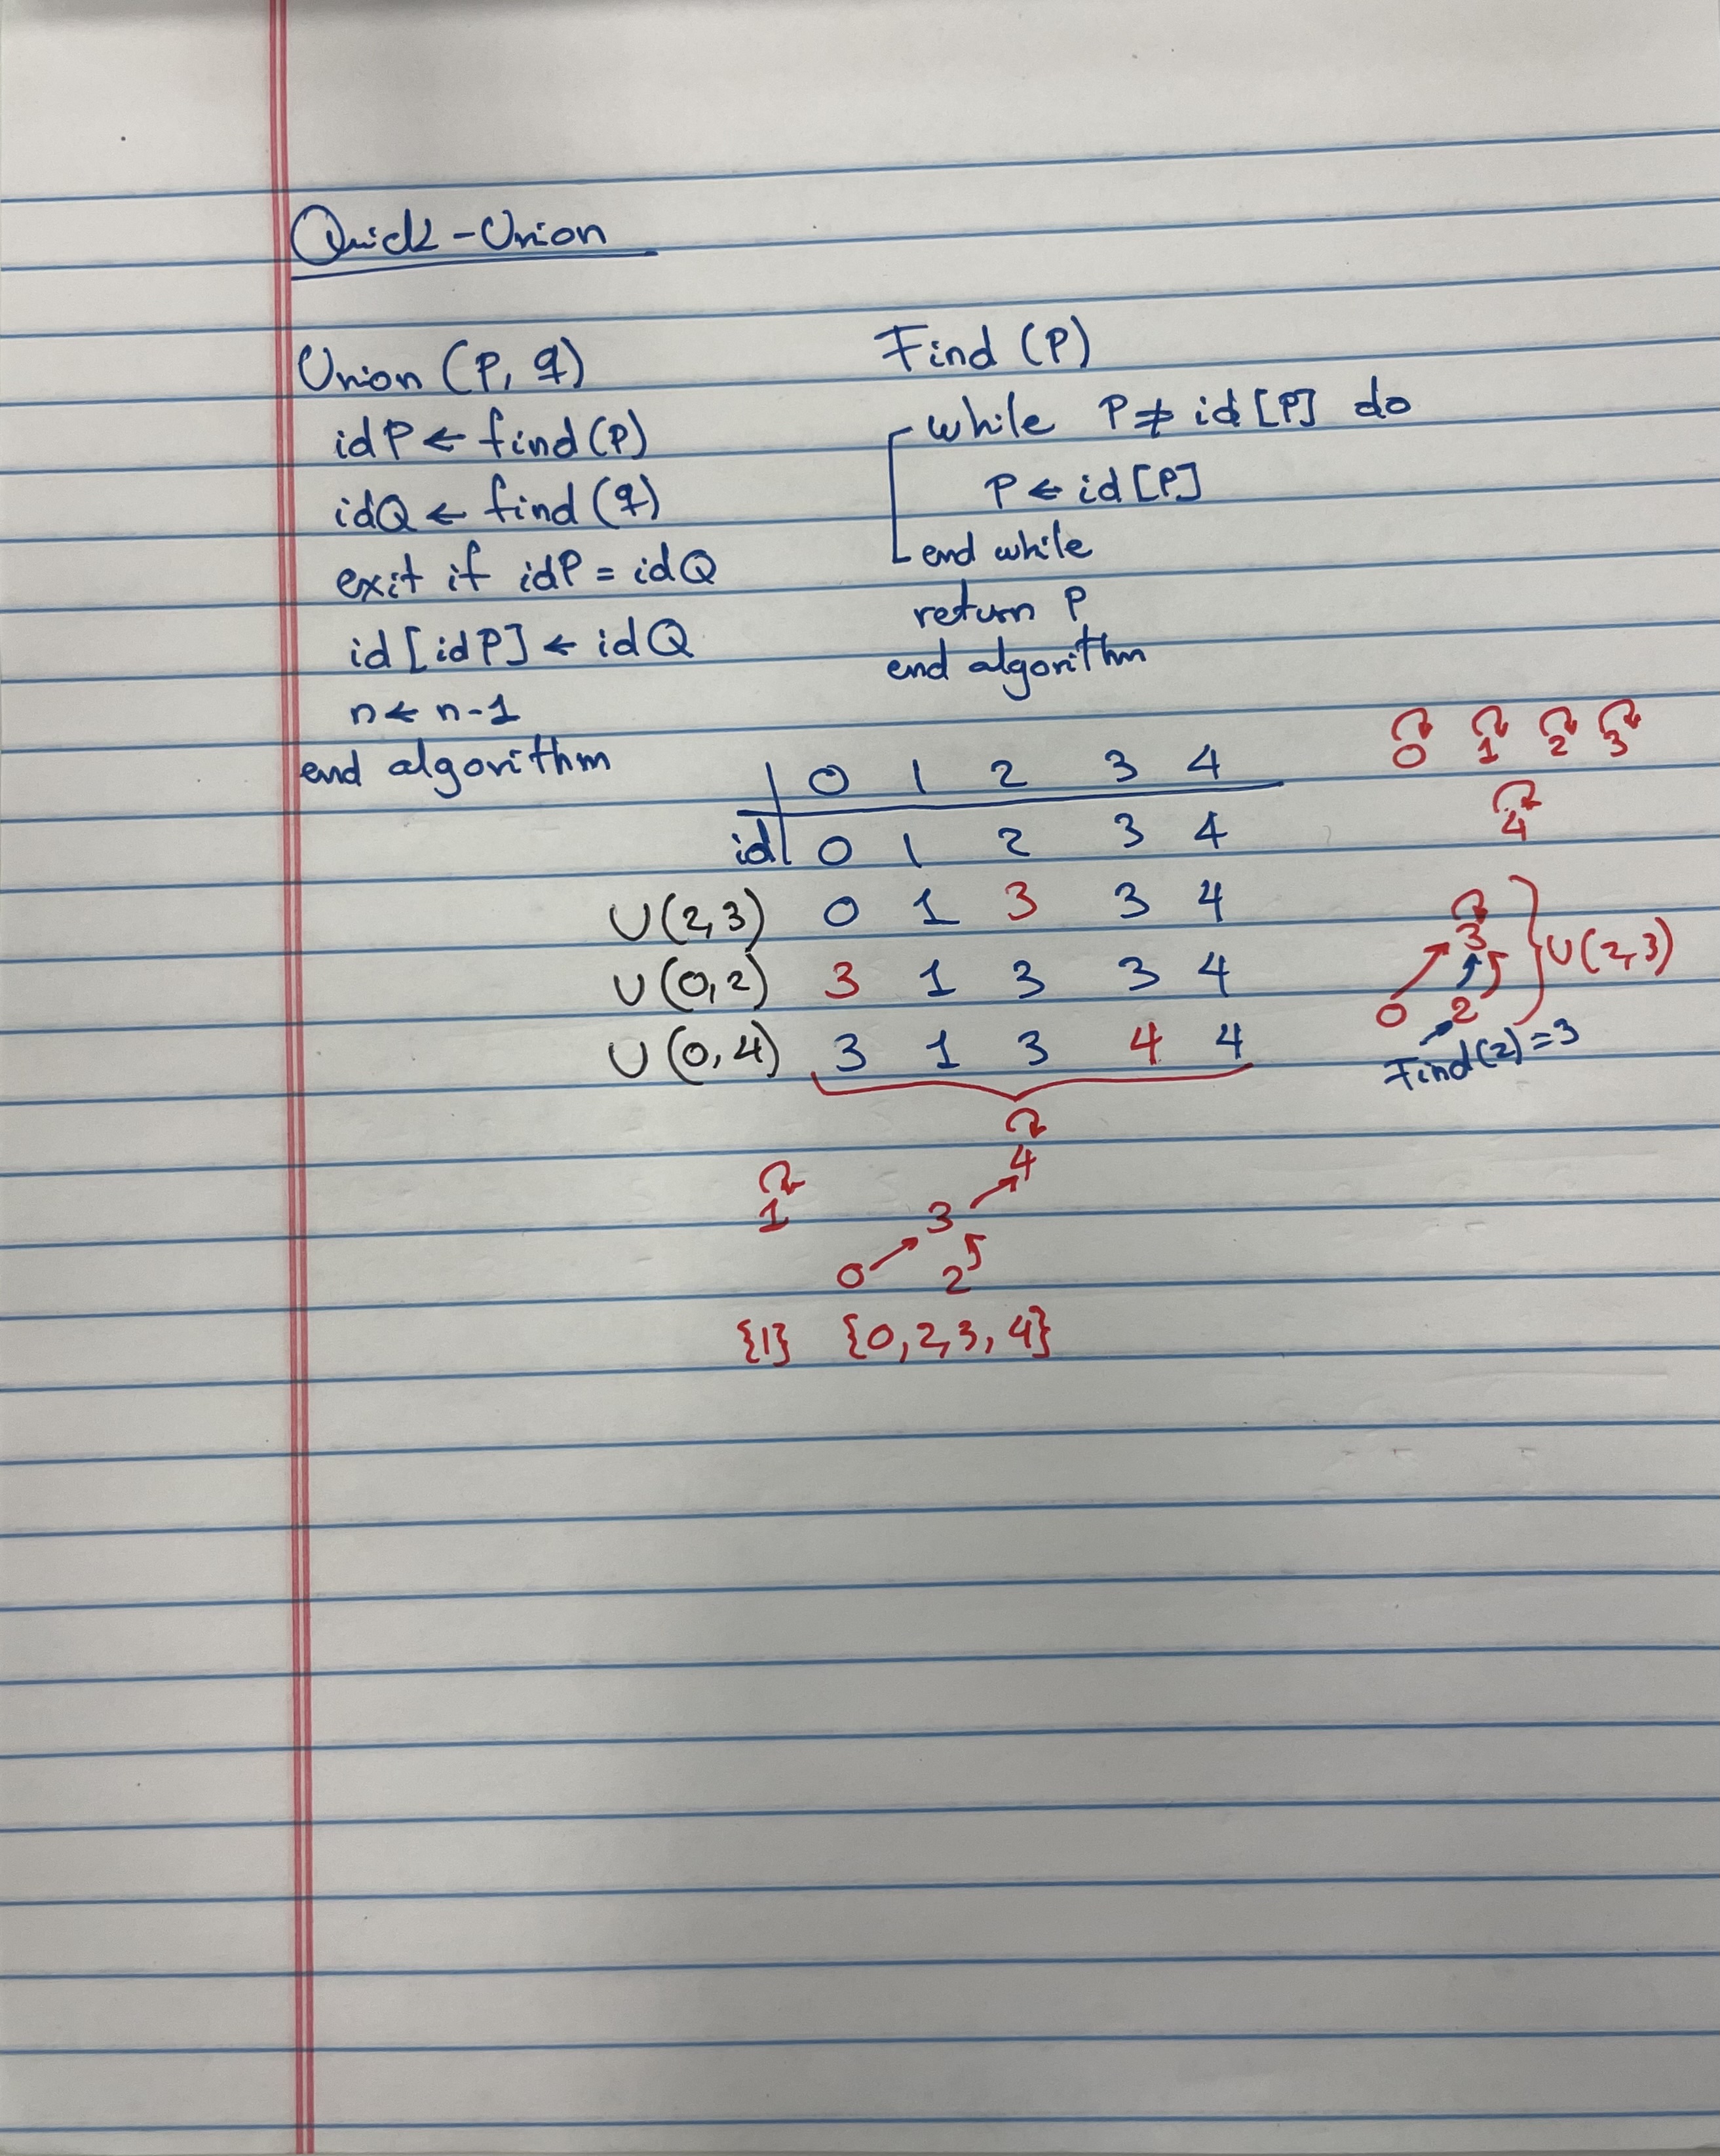 Quick-Union
Union (P, q)
idP ← find(P)
idQ ← find (q)
exit if idP = idQ
id [idP] ← idQ
n ← n-1
end algorithm
Find (P)
while P ≠ id [P] do
P ← id [P]
end while
return P
end algorithm
0 1 2 3 4
id 0 1 2 3 4
U(2,3) 0 1 3 3 4
U(0,2) 3 1 3 3 4
U(0,4) 3 1 3 4 4
0 1 2 3
4
3
0 2
U(2,3)
Find(2)=3
4
1 3
0 2
{1} {0,2,3,4}